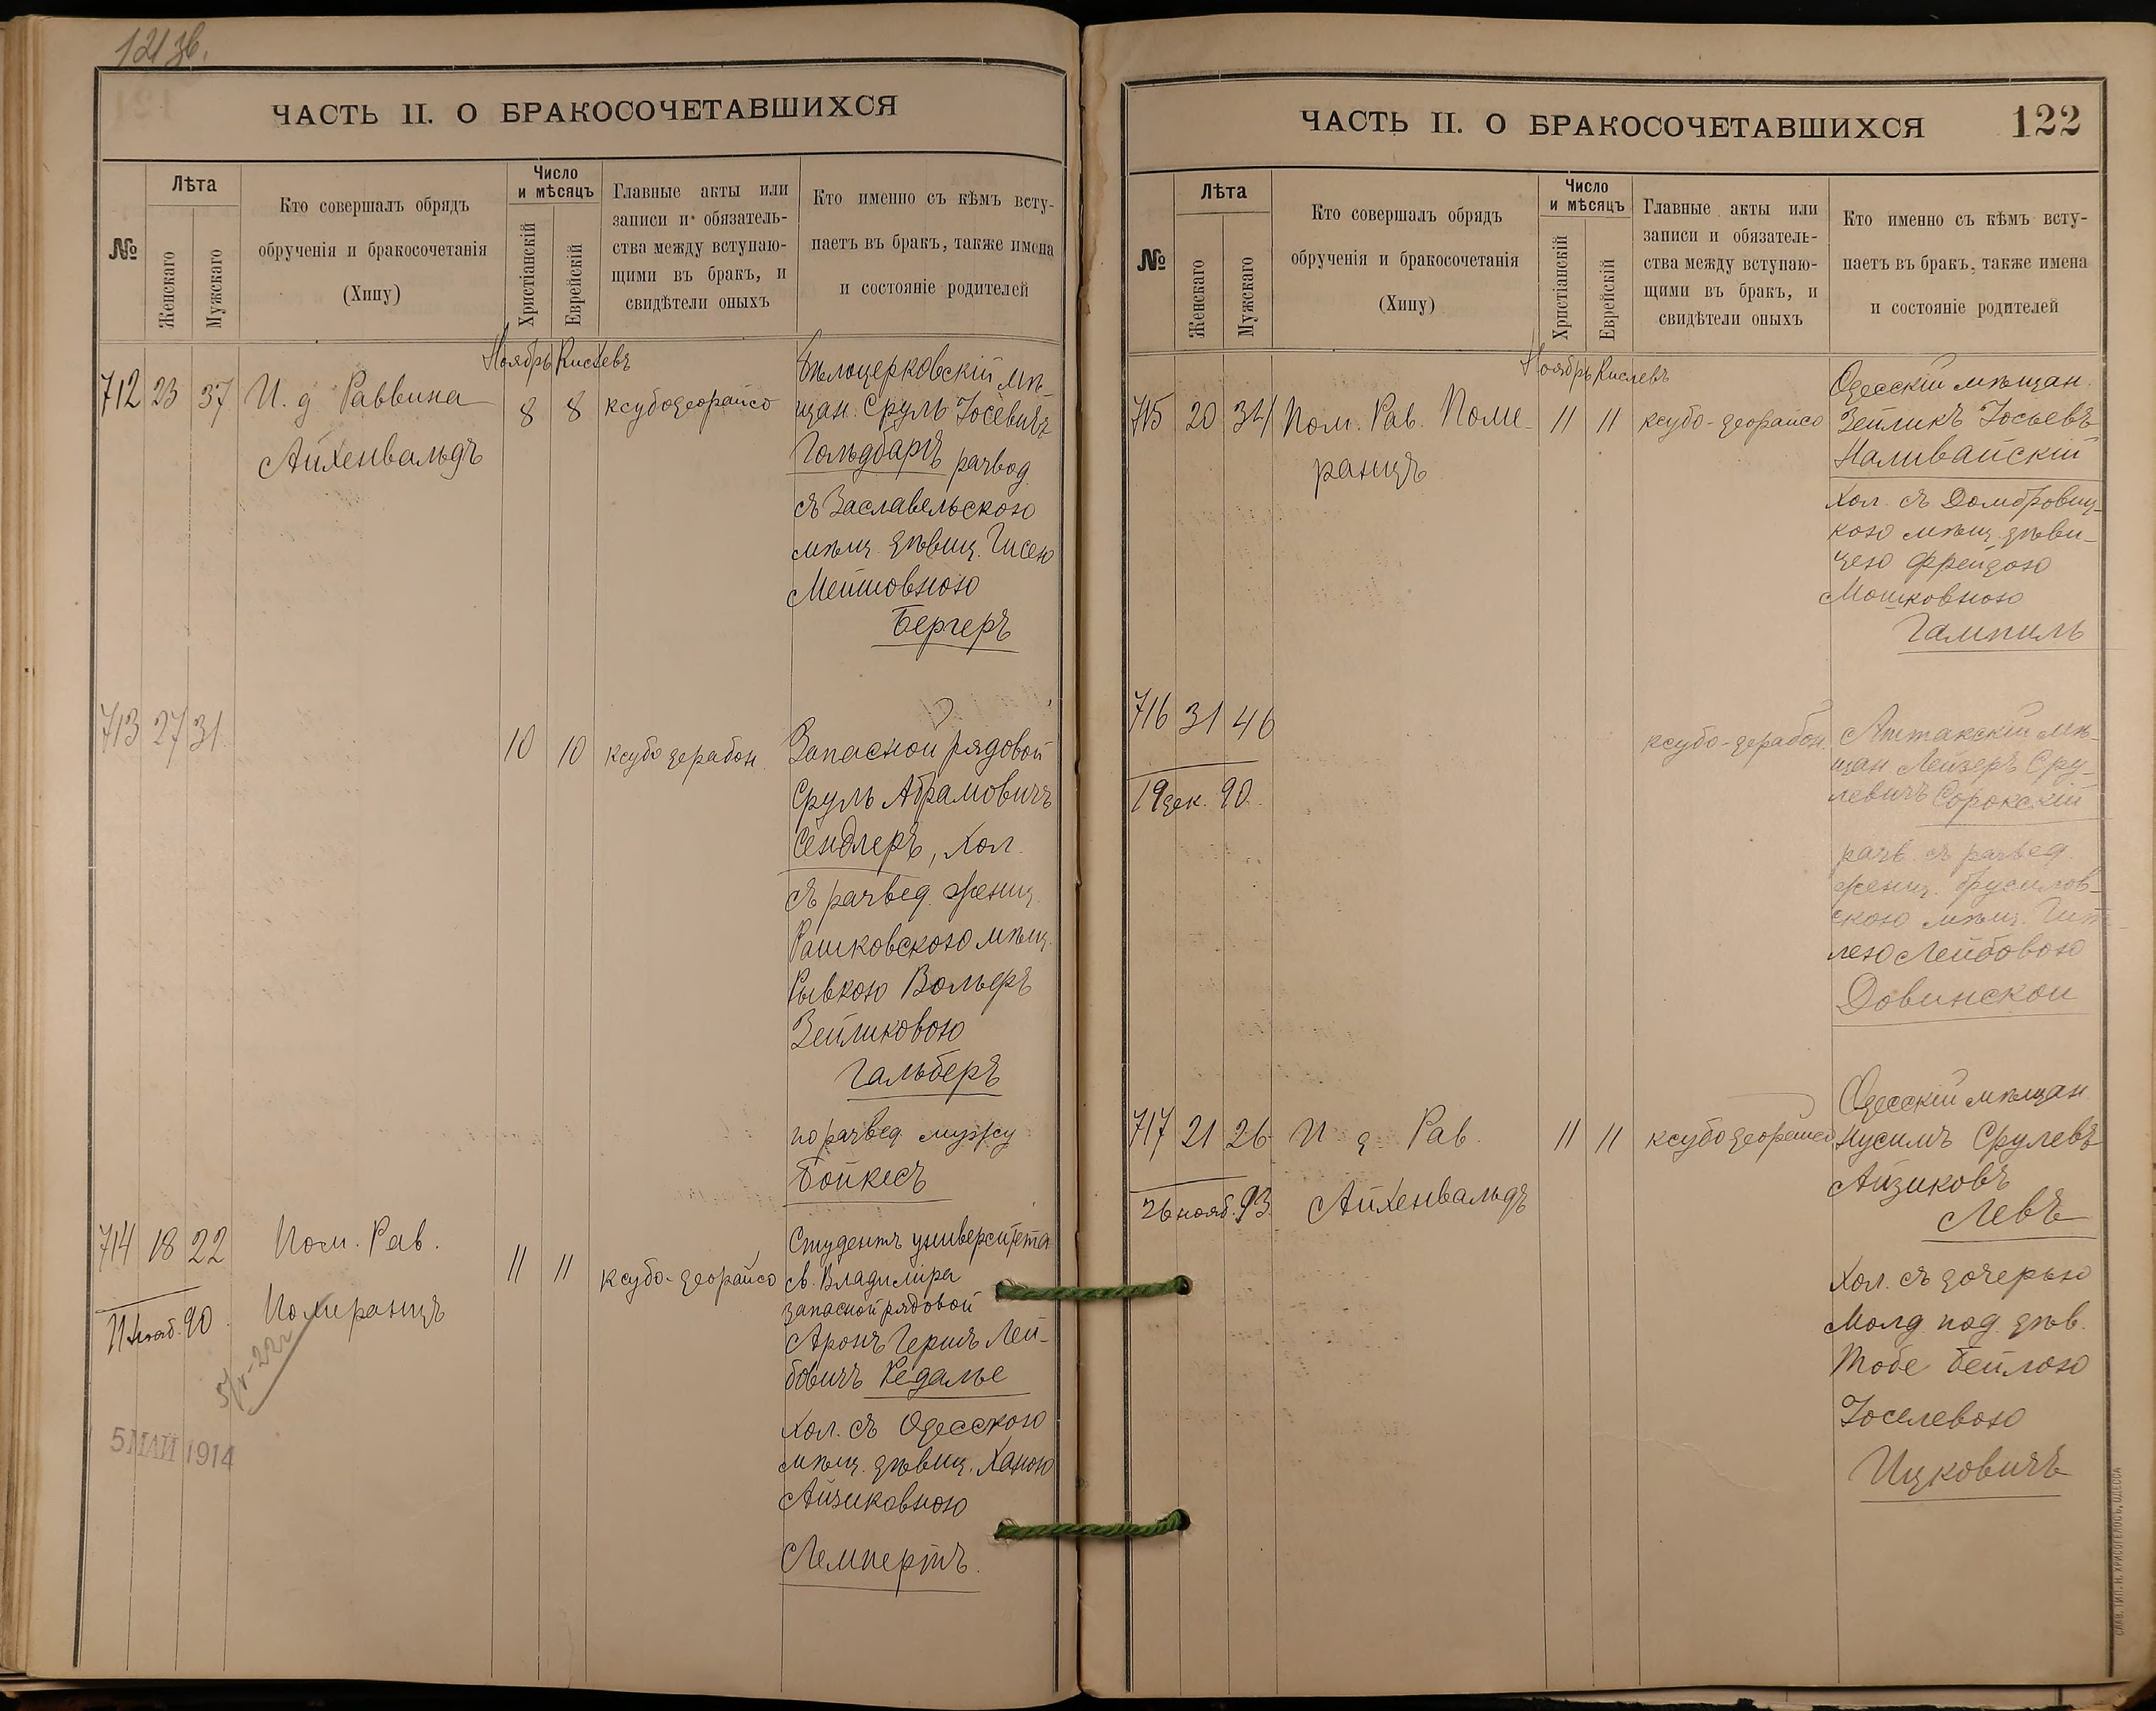 121 зв.
ЧАСТЬ II. О БРАКОСОЧЕТАВШИХСЯ
№
Лѣта
Женскаго
Мужскаго
Кто совершалъ обрядъ
обрученія и бракосочетанія
(Хипу)
Число
и мѣсяцъ
Христіанскій
Еврейскій
Главные акты или
записи и обязатель-
ства между вступаю-
щими въ бракъ, и
свидѣтели оныхъ
Кто именно съ кѣмъ всту-
паетъ въ бракъ, также имена
и состояніе родителей
Ноябрь Кислевъ
712 23 37 И. д Раввина
Айхенвальдъ
8 8 ксубо деорайсо
Бѣлоцерковскій мѣ-
щан. Сруль Іосевичъ
Гольдбартъ развод.
съ Заславельскою
мѣщ. дѣвиц. Гисею
Мейшовною
Бергеръ
713 27 31
10 10 ксубо дерабон.
Запасной рядовой
Сруль Абрамовичъ
Сендлеръ, хол.
съ развед. женщ.
Рашковскою мѣщ.
Рывкою Вольеръ
Зейликовою
Гальберъ
по развед. мужу
Бойкисъ
714 18 22 Пом. Рав.
11 нояб. 90 Померанцъ
5/V-22г
5 МАЙ 1914
11 11 ксубо-деорайсо
Студентъ университета
св. Владиміра
запасной рядовой
Аронъ Гершъ Лей-
бовичъ Редалье
Хол. съ Одесскою
мѣщ. дѣвиц. Ханою
Айзиковною
Лемпертъ.
ЧАСТЬ II. О БРАКОСОЧЕТАВШИХСЯ
122
№
Лѣта
Женскаго
Мужскаго
Кто совершалъ обрядъ
обрученія и бракосочетанія
(Хипу)
Число
и мѣсяцъ
Христіанскій
Еврейскій
Главные акты или
записи и обязатель-
ства между вступаю-
щими въ бракъ, и
свидѣтели оныхъ
Кто именно съ кѣмъ всту-
паетъ въ бракъ, также имена
и состояніе родителей
Ноябрь Кислевъ
715 20 34 Пом. Рав. Поме-
ранцъ
11 11 ксубо-деорайсо
Одесскій мѣщан.
Зейликъ Іосьевъ
Наливайскій
Хол. съ Домбровиц-
кою мѣщ. дѣви-
цею Фрейдою
Мошковною
Гампиль
716 31 46
19 дек. 90.
ксубо-дерабон.
Аттакскій мѣ-
щан. Лейзеръ Сру-
левичъ Сорокскій
разв. съ развед.
женщ. Брусилов-
скою мѣщ. Гит-
лею Лейбовою
Довинской
717 21 26 И д Рав.
26 нояб. 93. Айхенвальдъ
11 11 ксубо деорайсо
Одесскій мѣщан.
Нусимъ Срулевъ
Айзиковъ
Левъ
Хол. съ дочерью
Молд. под. дѣв.
Тобе Бейлою
Іоселевою
Ицковичъ
СЛАВ. ТИП. Н. ХРИСОГЕЛОСЪ, ОДЕССА